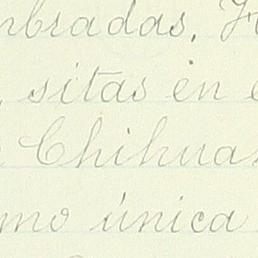 mbradas.
sitas en
Chihua
mo única